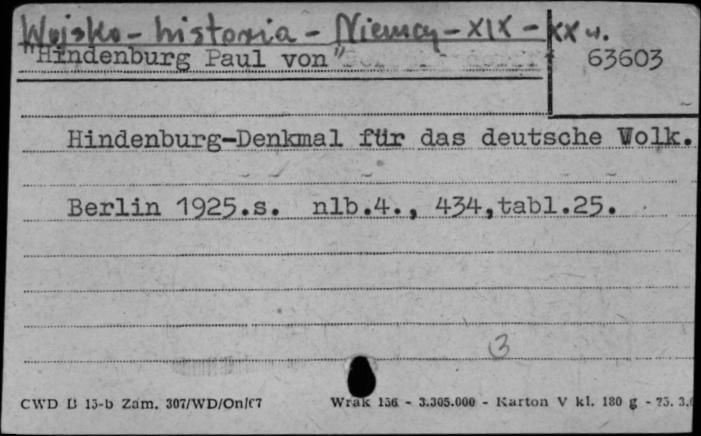 Wojsko - historia - Niemcy - XIX - XX w.
"Hindenburg Paul von"
63603
Hindenburg-Denkmal für das deutsche Volk.
Berlin 1925.s. nlb.4., 434,tabl.25.
3
CWD B 15-b Zam. 307/WD/On/67 Wrak 156 - 3.305.000 - Karton V kl. 180 g - 75. 3.